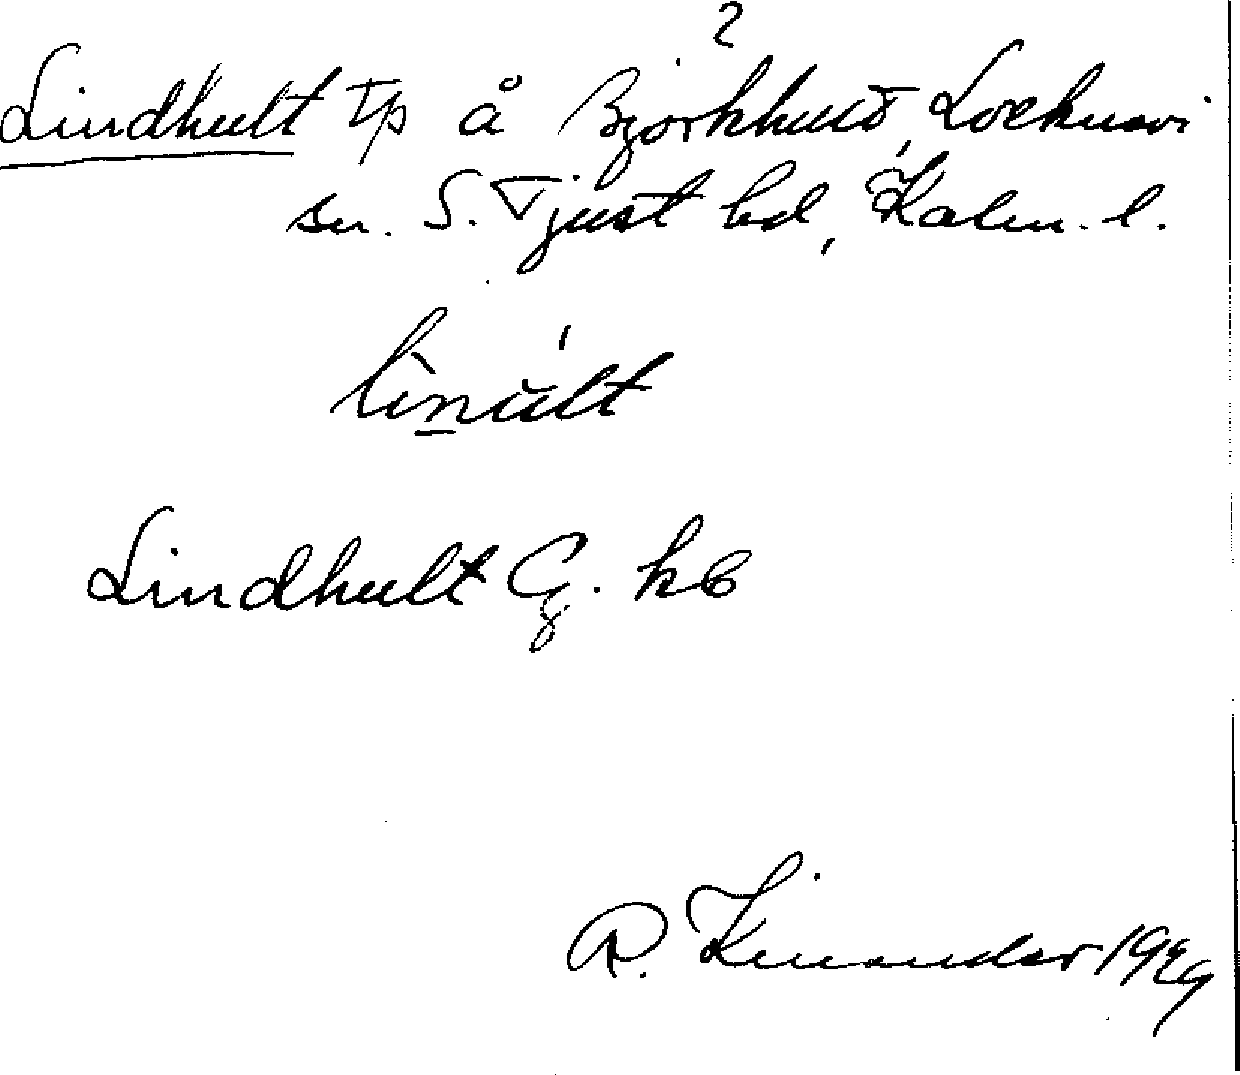 2
Lindhult Tp å Björkhult, Locknevi
sn. S. Tjust hd, Kalm. l.
lìnúlt
Lindhult Cg. kb
R. Kinander 1929